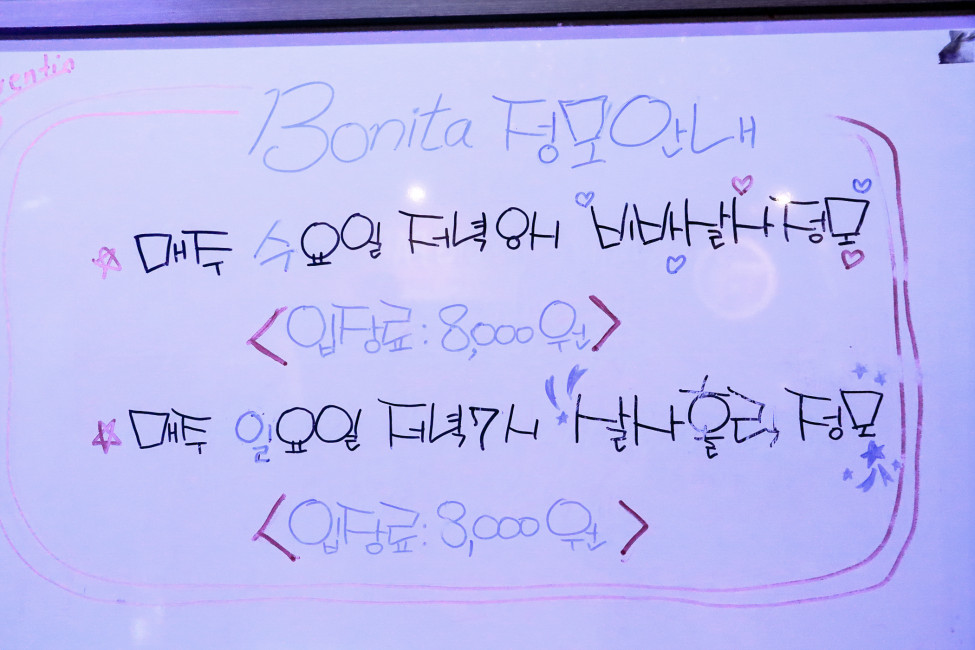 Bonita 정모안내
매주 수요일 저녁 8시 비바살사정모
<입장료: 8,000원>
매주 일요일 저녁7시 살사올로 정모
<입장료: 8,000원>